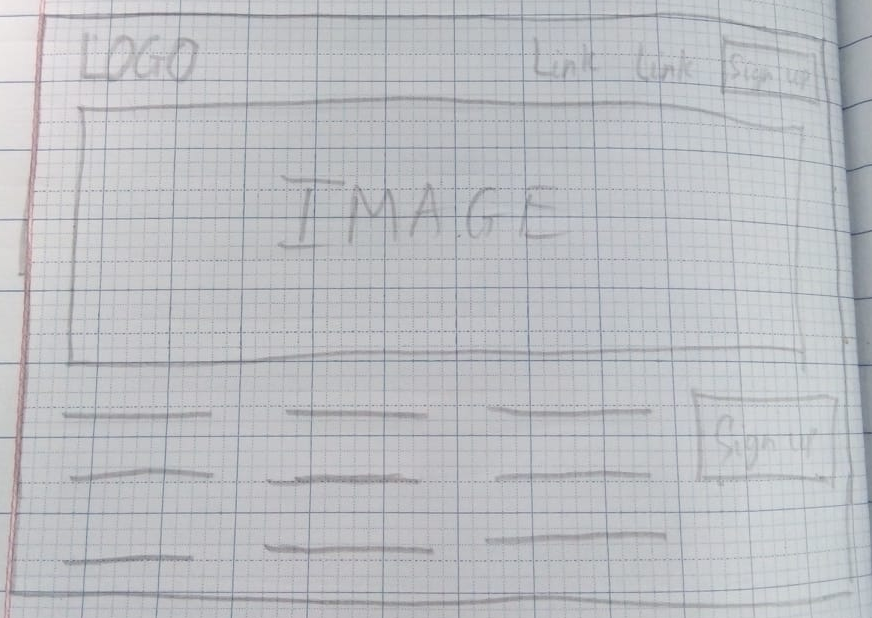 LOGO Link Link Sign up
IMAGE
Sign up